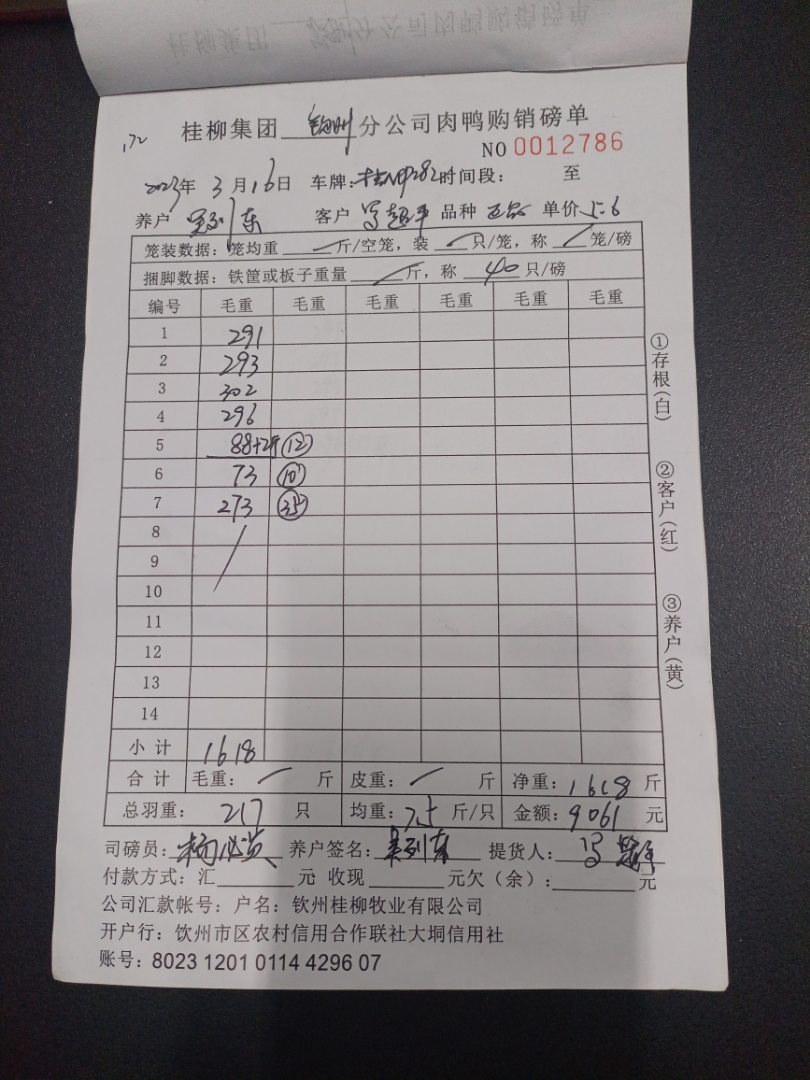 172
桂柳集团 钦州 分公司肉鸭购销磅单
NO 0012786
2023年 3月16日 车牌: 时间段: 至
养户 东 客户 品种 正品 单价 5.6
笼装数据: 笼均重 斤/空笼, 装 只/笼, 称 笼/磅
捆脚数据: 铁筐或板子重量 斤, 称 40 只/磅
编号 毛重 毛重 毛重 毛重 毛重 毛重
1 291
2 293
3 302
4 296
5 88+2 (12)
6 73 (10)
7 273 (35)
8
9
10
11
12
13
14
小计 1618
合计 毛重: 斤 皮重: 斤 净重: 1618 斤
总羽重: 217 只 均重: 7.5 斤/只 金额: 9061 元
司磅员: 杨 养户签名: 东 提货人:
付款方式: 汇 元 收现 元欠(余): 元
公司汇款帐号: 户名: 钦州桂柳牧业有限公司
开户行: 钦州市区农村信用合作联社大垌信用社
账号: 8023 1201 0114 4296 07
①存根(白)
②客户(红)
③养户(黄)